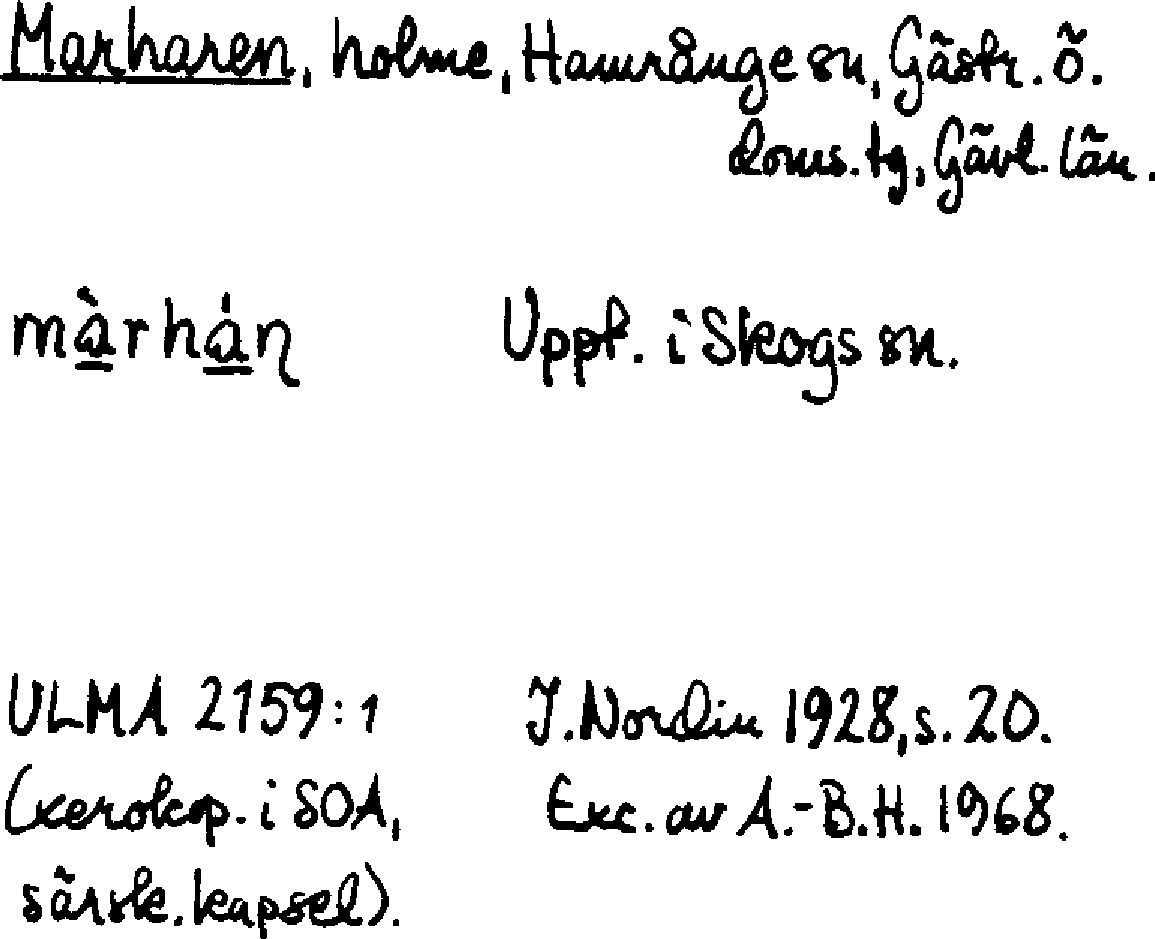 Marharen, holme, Hamrånge sn, Gästr. ö.
doms. tg, Gävl. län.
màrhán̩ Uppt. i Skogs sn.
ULMA 2159:1 J. Nordin 1928, s. 20.
(xerokop. i SOA, Exc. av A.-B.H. 1968.
särsk. kapsel).